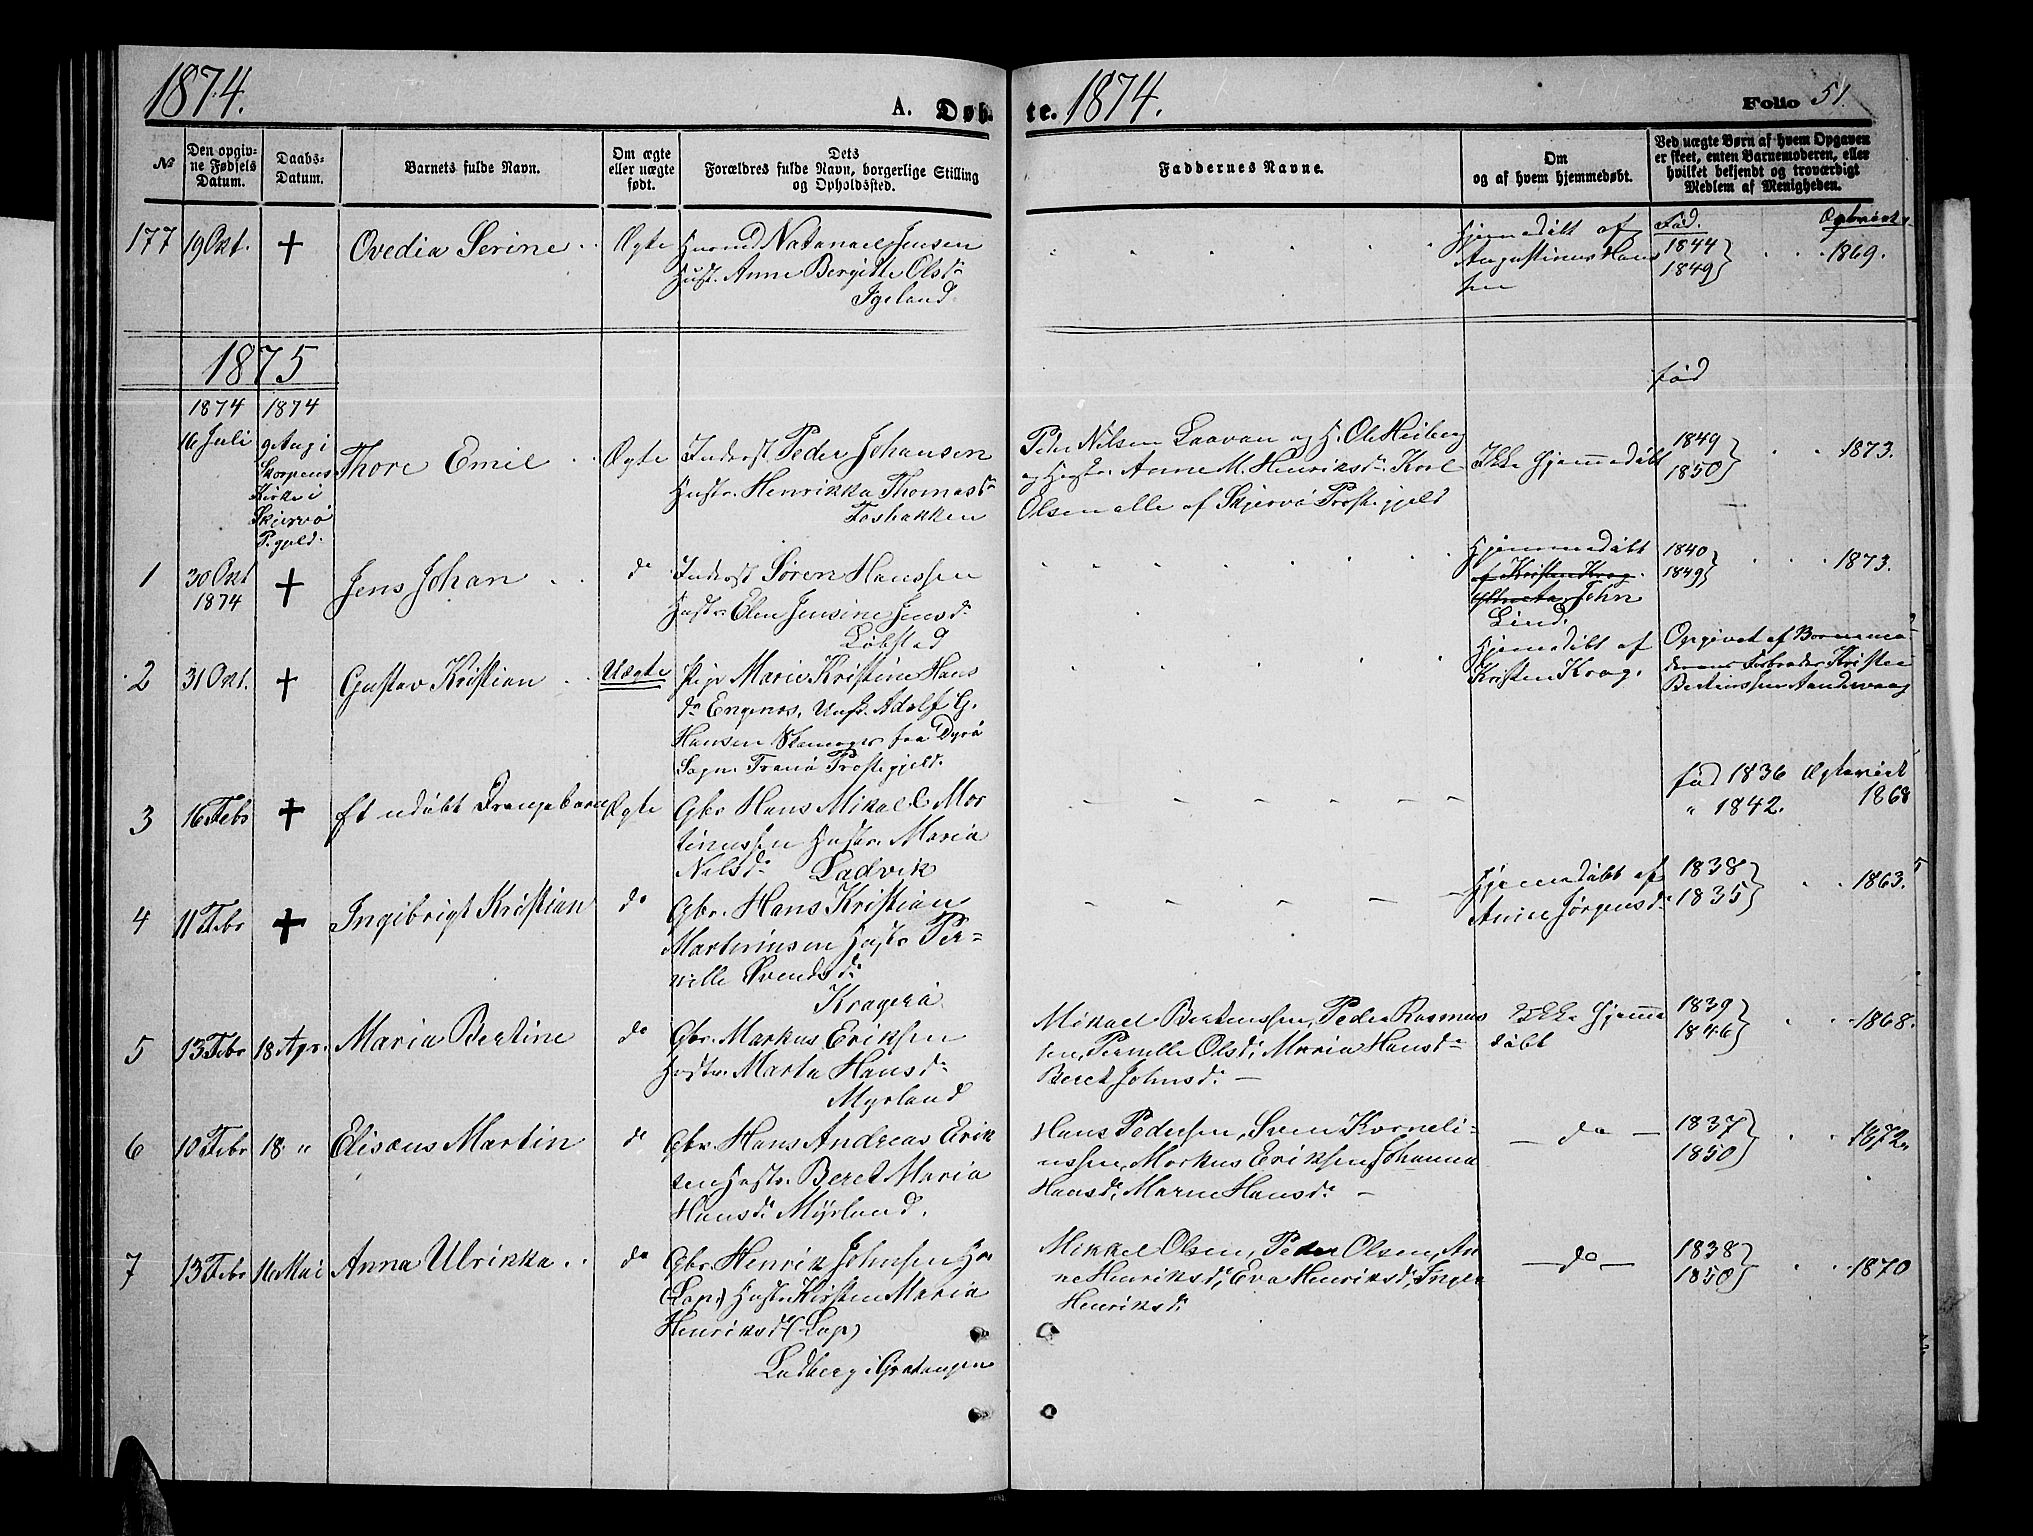 1874.
A. Døb-
te. 1874.
Folio 51.
№
Den opgiv-
ne Fødsels
Datum.
Daabs-
Datum.
Barnets fulde Navn.
Om ægte
eller uægte
født.
Dets
Forældres fulde Navn, borgerlige Stilling
og Opholdssted.
Faddernes Navne.
Om
og af hvem hjemmedøbt.
Ved uægte Børn af hvem Opgaven
er skeet, enten Barnemoderen, eller
hvilket bekjendt og troværdigt
Medlem af Menigheden.
177 19 Okt. + Ovedia Serine Ægte
Natanael Jensen
Hustr. Anne Bergitte Olsd.
Igeland
Hjemmedøbt af
Augustinus Hans
sen
Fød.
1844
1849
1869.
1875
fød
1874 1874
16 Juli
9 Aug i
Skorpens
Kirke i
Skjervø
P.gjeld.
Thore Emil Ægte
Inderst Peder Johansen
Hustr. Henrikka Thomasd.
Fosbakken
Peder Nilsen Laavan og H. Ole Heiberg
og Hustr. Anne M. Henriksd. Karl
Olsen alle af Skjervø Præstegjeld
Ikke hjemmedøbt
1849
1850
1873.
1 30 Okt
1874
+ Jens Johan do
Inderst Søren Hanssen
Hustr. Elen Jensine Jensd.
Løbstad
Hjemmedøbt
af Kristen Krog
John
Lind.
1840
1849
1873.
2 31 Okt. + Gustav Kristian Uægte
Pige Marie Kristine Hans
d. Engenes, Ungk. Adolf G.
Hansen fra Dyrø
Sogn Tranø Præstegjeld.
Hjemmedøbt af
Kristen Krog.
Opgivet af Barnemo-
derens Farbroder Kristen
Bertinssen Aandervaag
3 16 Febr + Et udøbt Drengebarn Ægte
Gbr. Hans Mikal C. Mor
tinussen Hustr. Maria
Nilsd. Ladvik
fød 1836 Ægteviet
" 1842. 1868
4 11 Febr + Ingebrigt Kristian do
Gbr. Hans Kristian
Martinusen Hustr. Per-
nille Svendsd.
Kragerø
Hjemmedøbt af
Anne Jørgensd.
1838
1835
1863.
5 13 Febr 18 Apr. Maria Bertine do
Gbr. Markus Eriksen
Hustr. Marta Hansd.
Myrland
Mikael Bertinssen, Peder Rasmus
sen, Pernille Olsd. Maria Hansd.
Beret Johnsd. —
Ikke hjemme
døbt
1839
1846
1868.
6 10 Febr 18 " Elisæus Martin do
Gbr. Hans Andreas Erik
sen Hustr. Beret Maria
Hansd. Myrland.
Hans Pedersen, Sven Korneli-
ussen, Markus Eriksen, Johanna
Hansd. Maren Hansd. —
— do —
1837
1850
1872.
7 13 Febr 16 Mai Anna Ulrikka do
Gbr. Henrik Johnsen
(Lap) Hustr. Kirsten Maria
Henriksd. (Lap)
Ladberg i Gratangen
Mikkel Olsen, Peder Olsen, An
ne Henriksd. Eva Henriksd. Inger
Henriksd.
— do —
1838
1850
1870